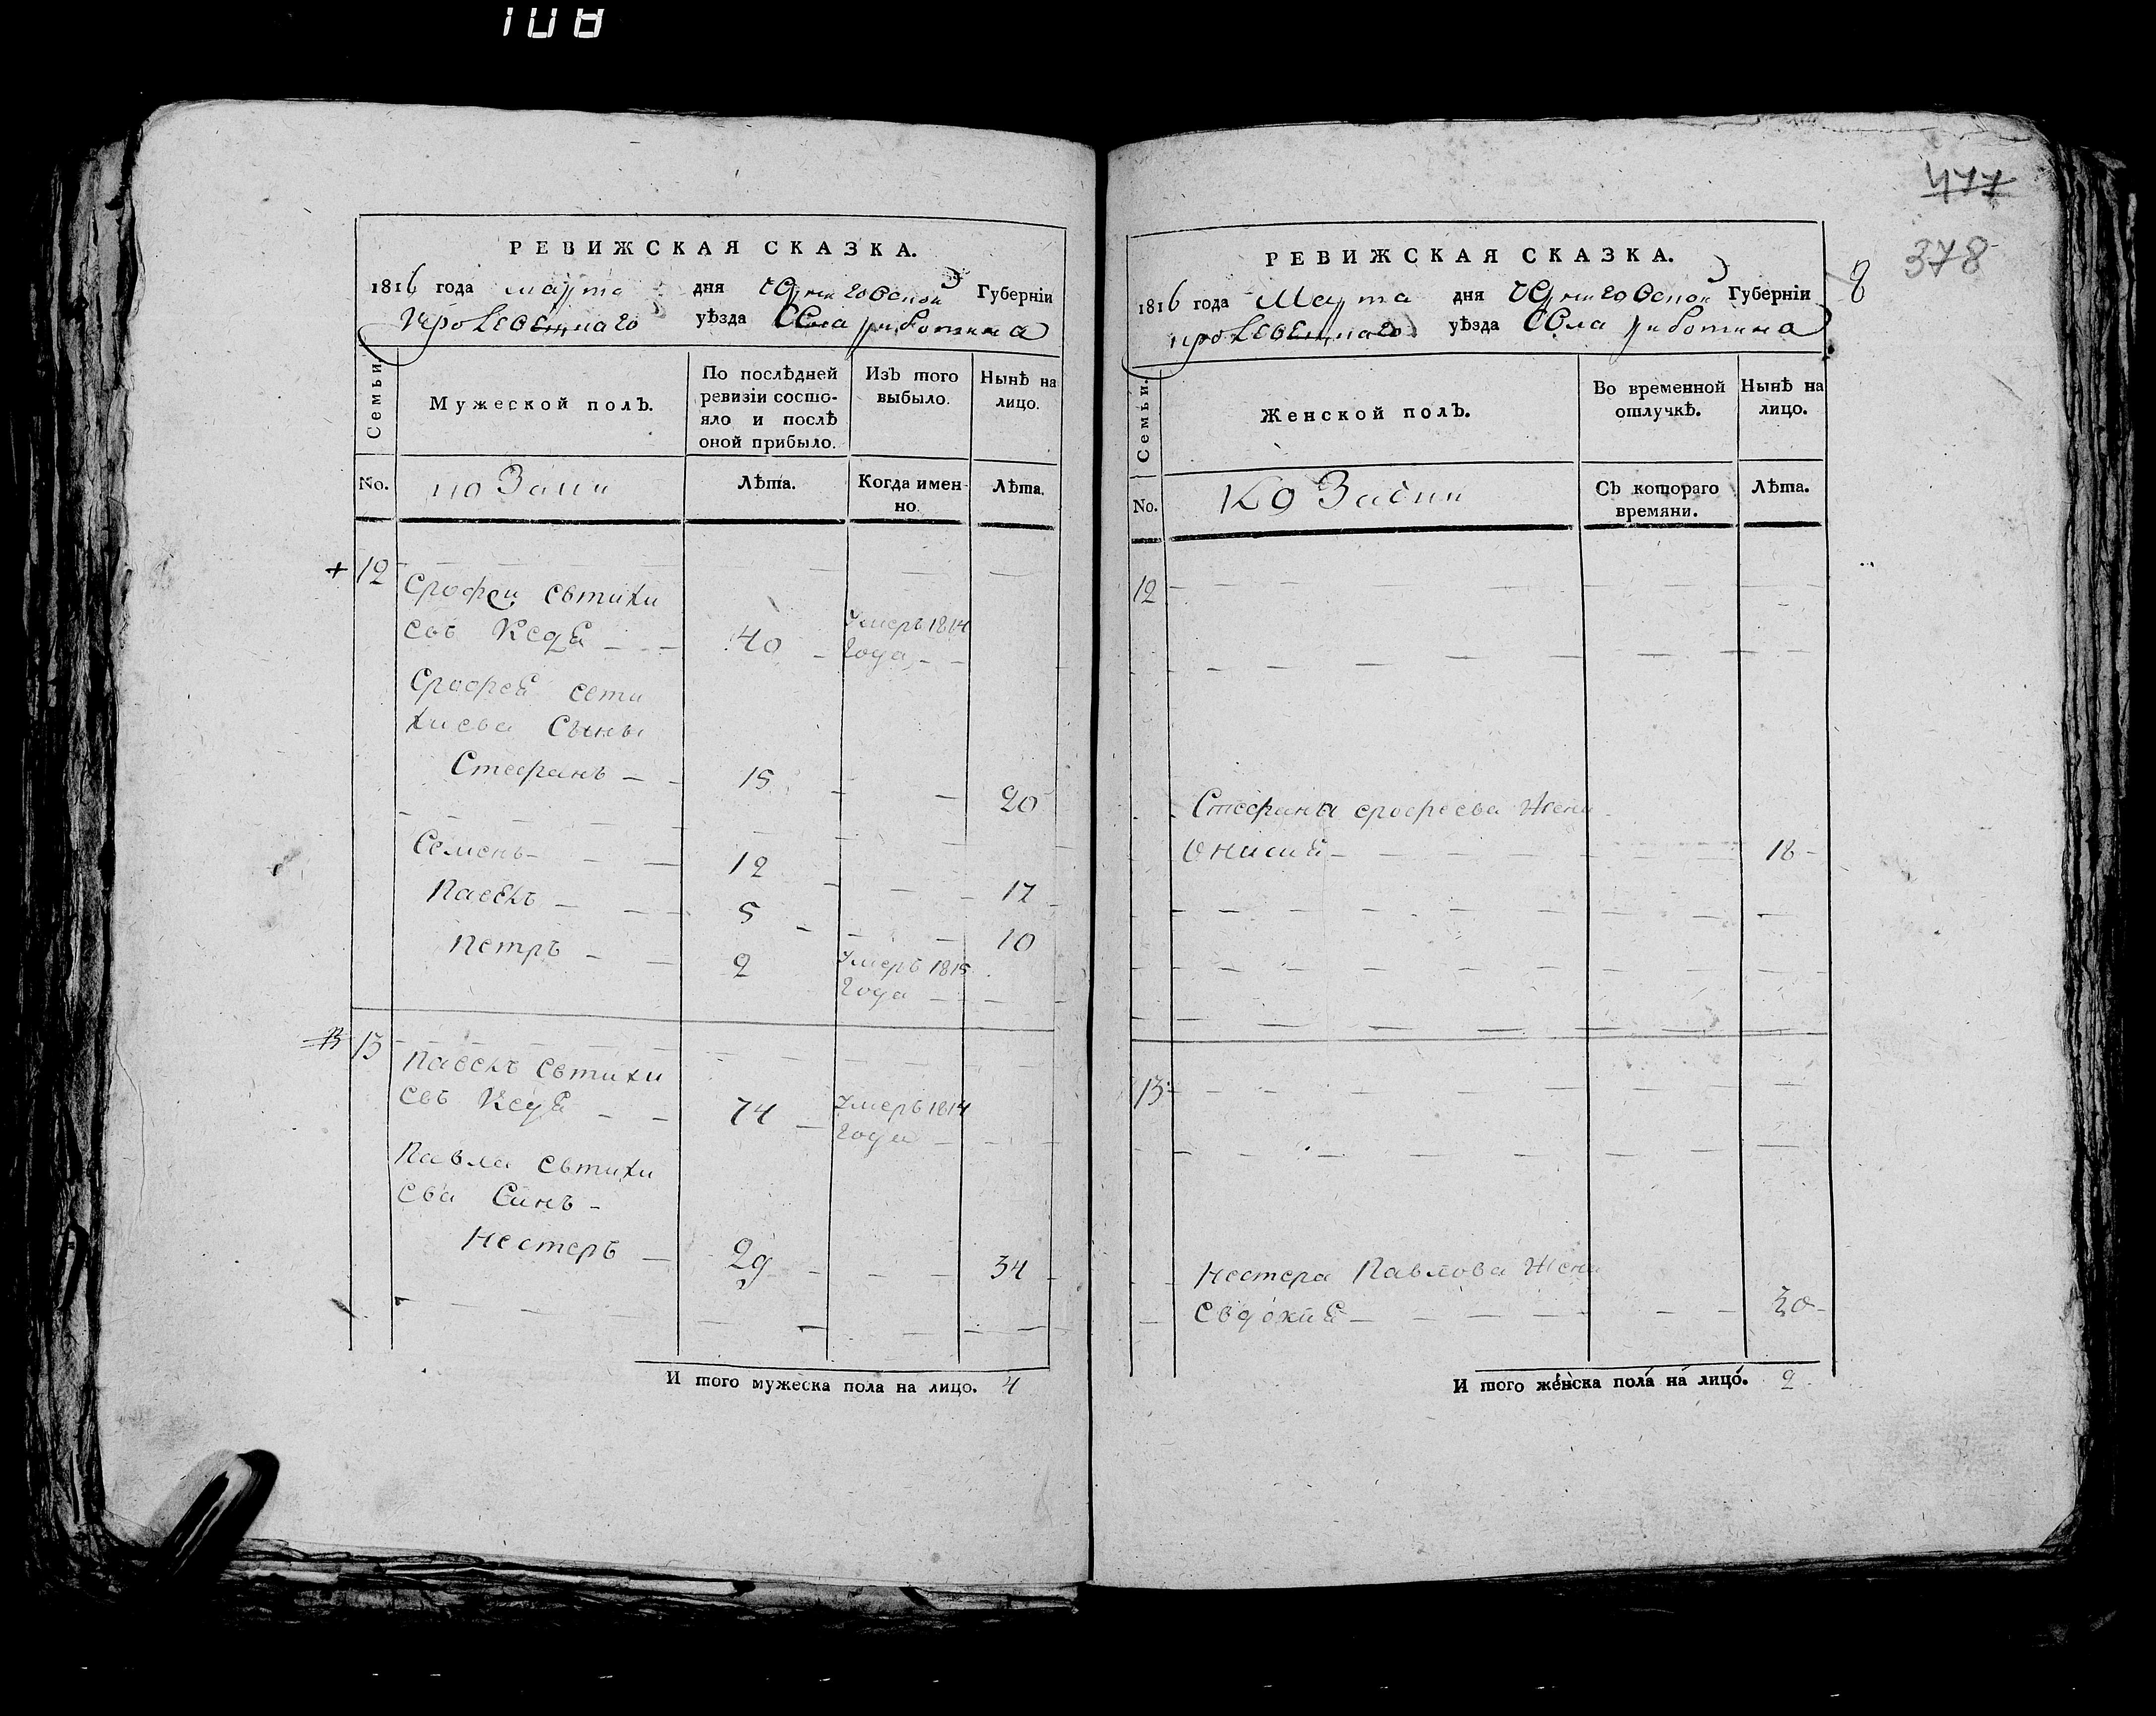 108
477
378
8
РЕВИЖСКАЯ СКАЗКА.
1816 года марта дня Черниговской Губерніи
кролевецнаго уѣзда Села риботина
Семьи.
Мужеской полъ.
По послѣдней ревизіи состо-
яло и послѣ
оной прибыло.
Изъ того
выбыло.
Нынѣ на
лицо.
No.
Лѣта.
Когда имен-
но.
Лѣта.
12
Ерофеи евтихи
евъ Кедя 40 Умеръ 1814
года
Ерофея евти
хиева Сыны
Стефанъ 15 20
Семенъ 12 17
Павелъ 5 10
Петръ 2 Умеръ 1815
года
13
Павелъ евтихи
евъ Кедя 74 Умеръ 1814
года
Павла евтихи
ева Синъ
Нестеръ 29 34
И того мужеска пола на лицо. 4
РЕВИЖСКАЯ СКАЗКА.
1816 года Марта дня Черниговской Губерніи
кролевецнаго уѣзда Села риботина
Семьи.
Женской полъ.
Во временной
отлучкѣ.
Нынѣ на
лицо.
No.
Съ котораго
времяни.
Лѣта.
12
Стефана ерофеева Жена
Онисия 18
13
Нестера Павлова Жена
Евдокия 30
И того женска пола на лицо. 2